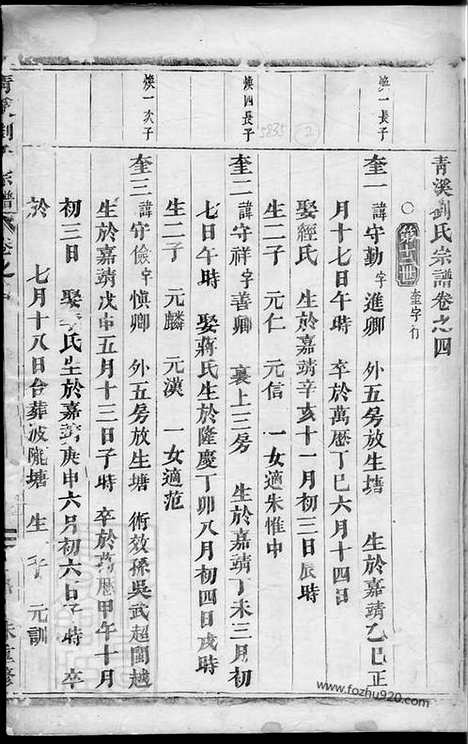 青溪劉氏宗譜卷之四
奎字行
煥一長子
奎一 諱守勤 字進卿 外五房放生塘 生於嘉靖乙巳正
月十七日午時 卒於萬歷丁巳六月十四日
娶經氏 生於嘉靖辛亥十一月初三日辰時
生二子 元仁 元信 一女適朱惟中
煥四長子
奎二 諱守祥 字善卿 裏上三房 生於嘉靖丁未三月初
七日午時 娶蔣氏生於隆慶丁卯八月初四日戌時
生二子 元麟 元漢 一女適范
煥一次子
奎三 諱守儉 字慎卿 外五房放生塘 術效孫吳武超閩越
生於嘉靖戊申五月十三日子時 卒於萬歷甲午十月
初三日 娶李氏生於嘉靖庚申六月初六日子時 卒
於 七月十八日合葬波隴塘 生一子 元訓
5835
2
www.fozhu920.com